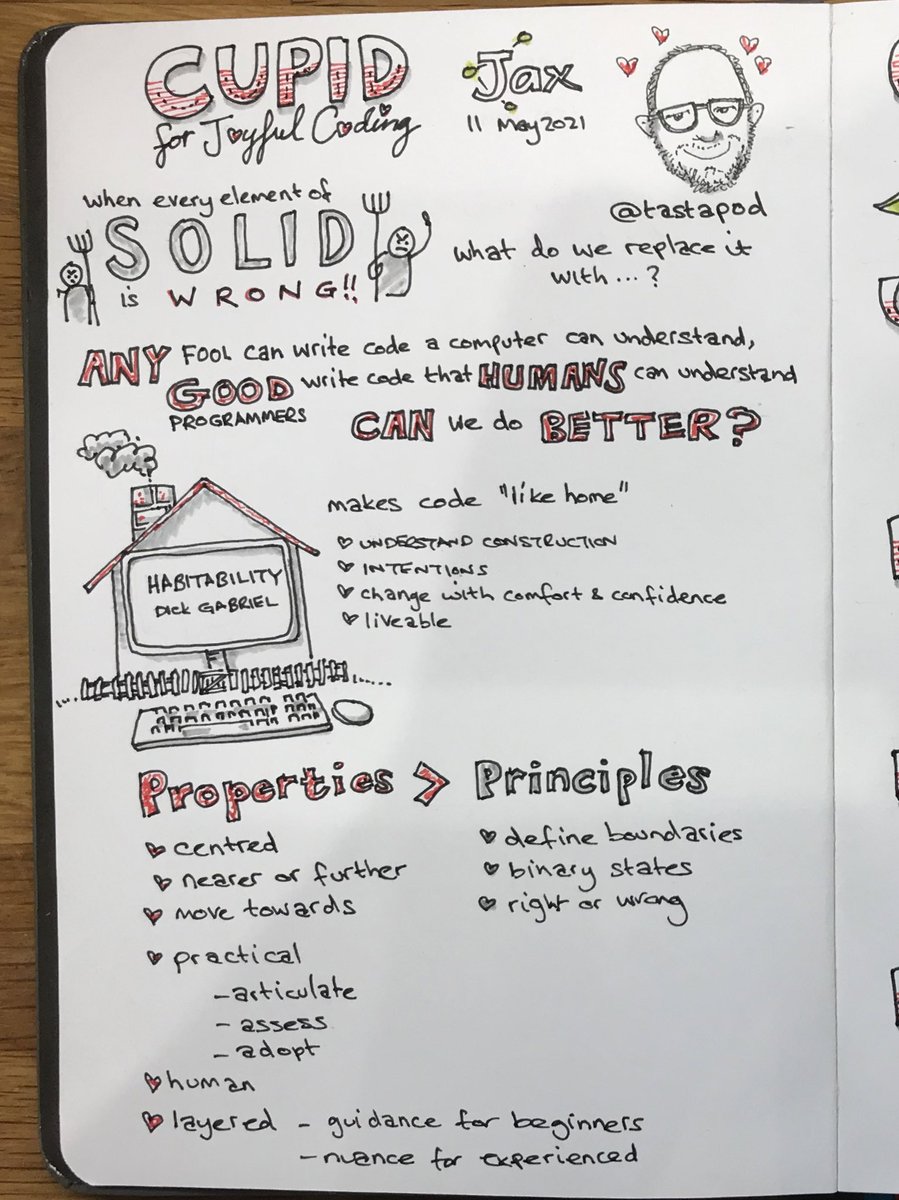 CUPID
for Joyful Coding
Jax
11 May 2021
@tastapod
when every element of
SOLID
is WRONG!!
what do we replace it
with...?
ANY FOOL can write code a computer can understand,
GOOD write code that HUMANS can understand
PROGRAMMERS
CAN we do BETTER?
HABITABILITY
DICK GABRIEL
makes code "like home"
UNDERSTAND CONSTRUCTION
INTENTIONS
change with comfort & confidence
liveable
Properties > Principles
centred
nearer or further
move towards
practical
- articulate
- assess
- adopt
human
layered - guidance for beginners
- nuance for experienced
define boundaries
binary states
right or wrong